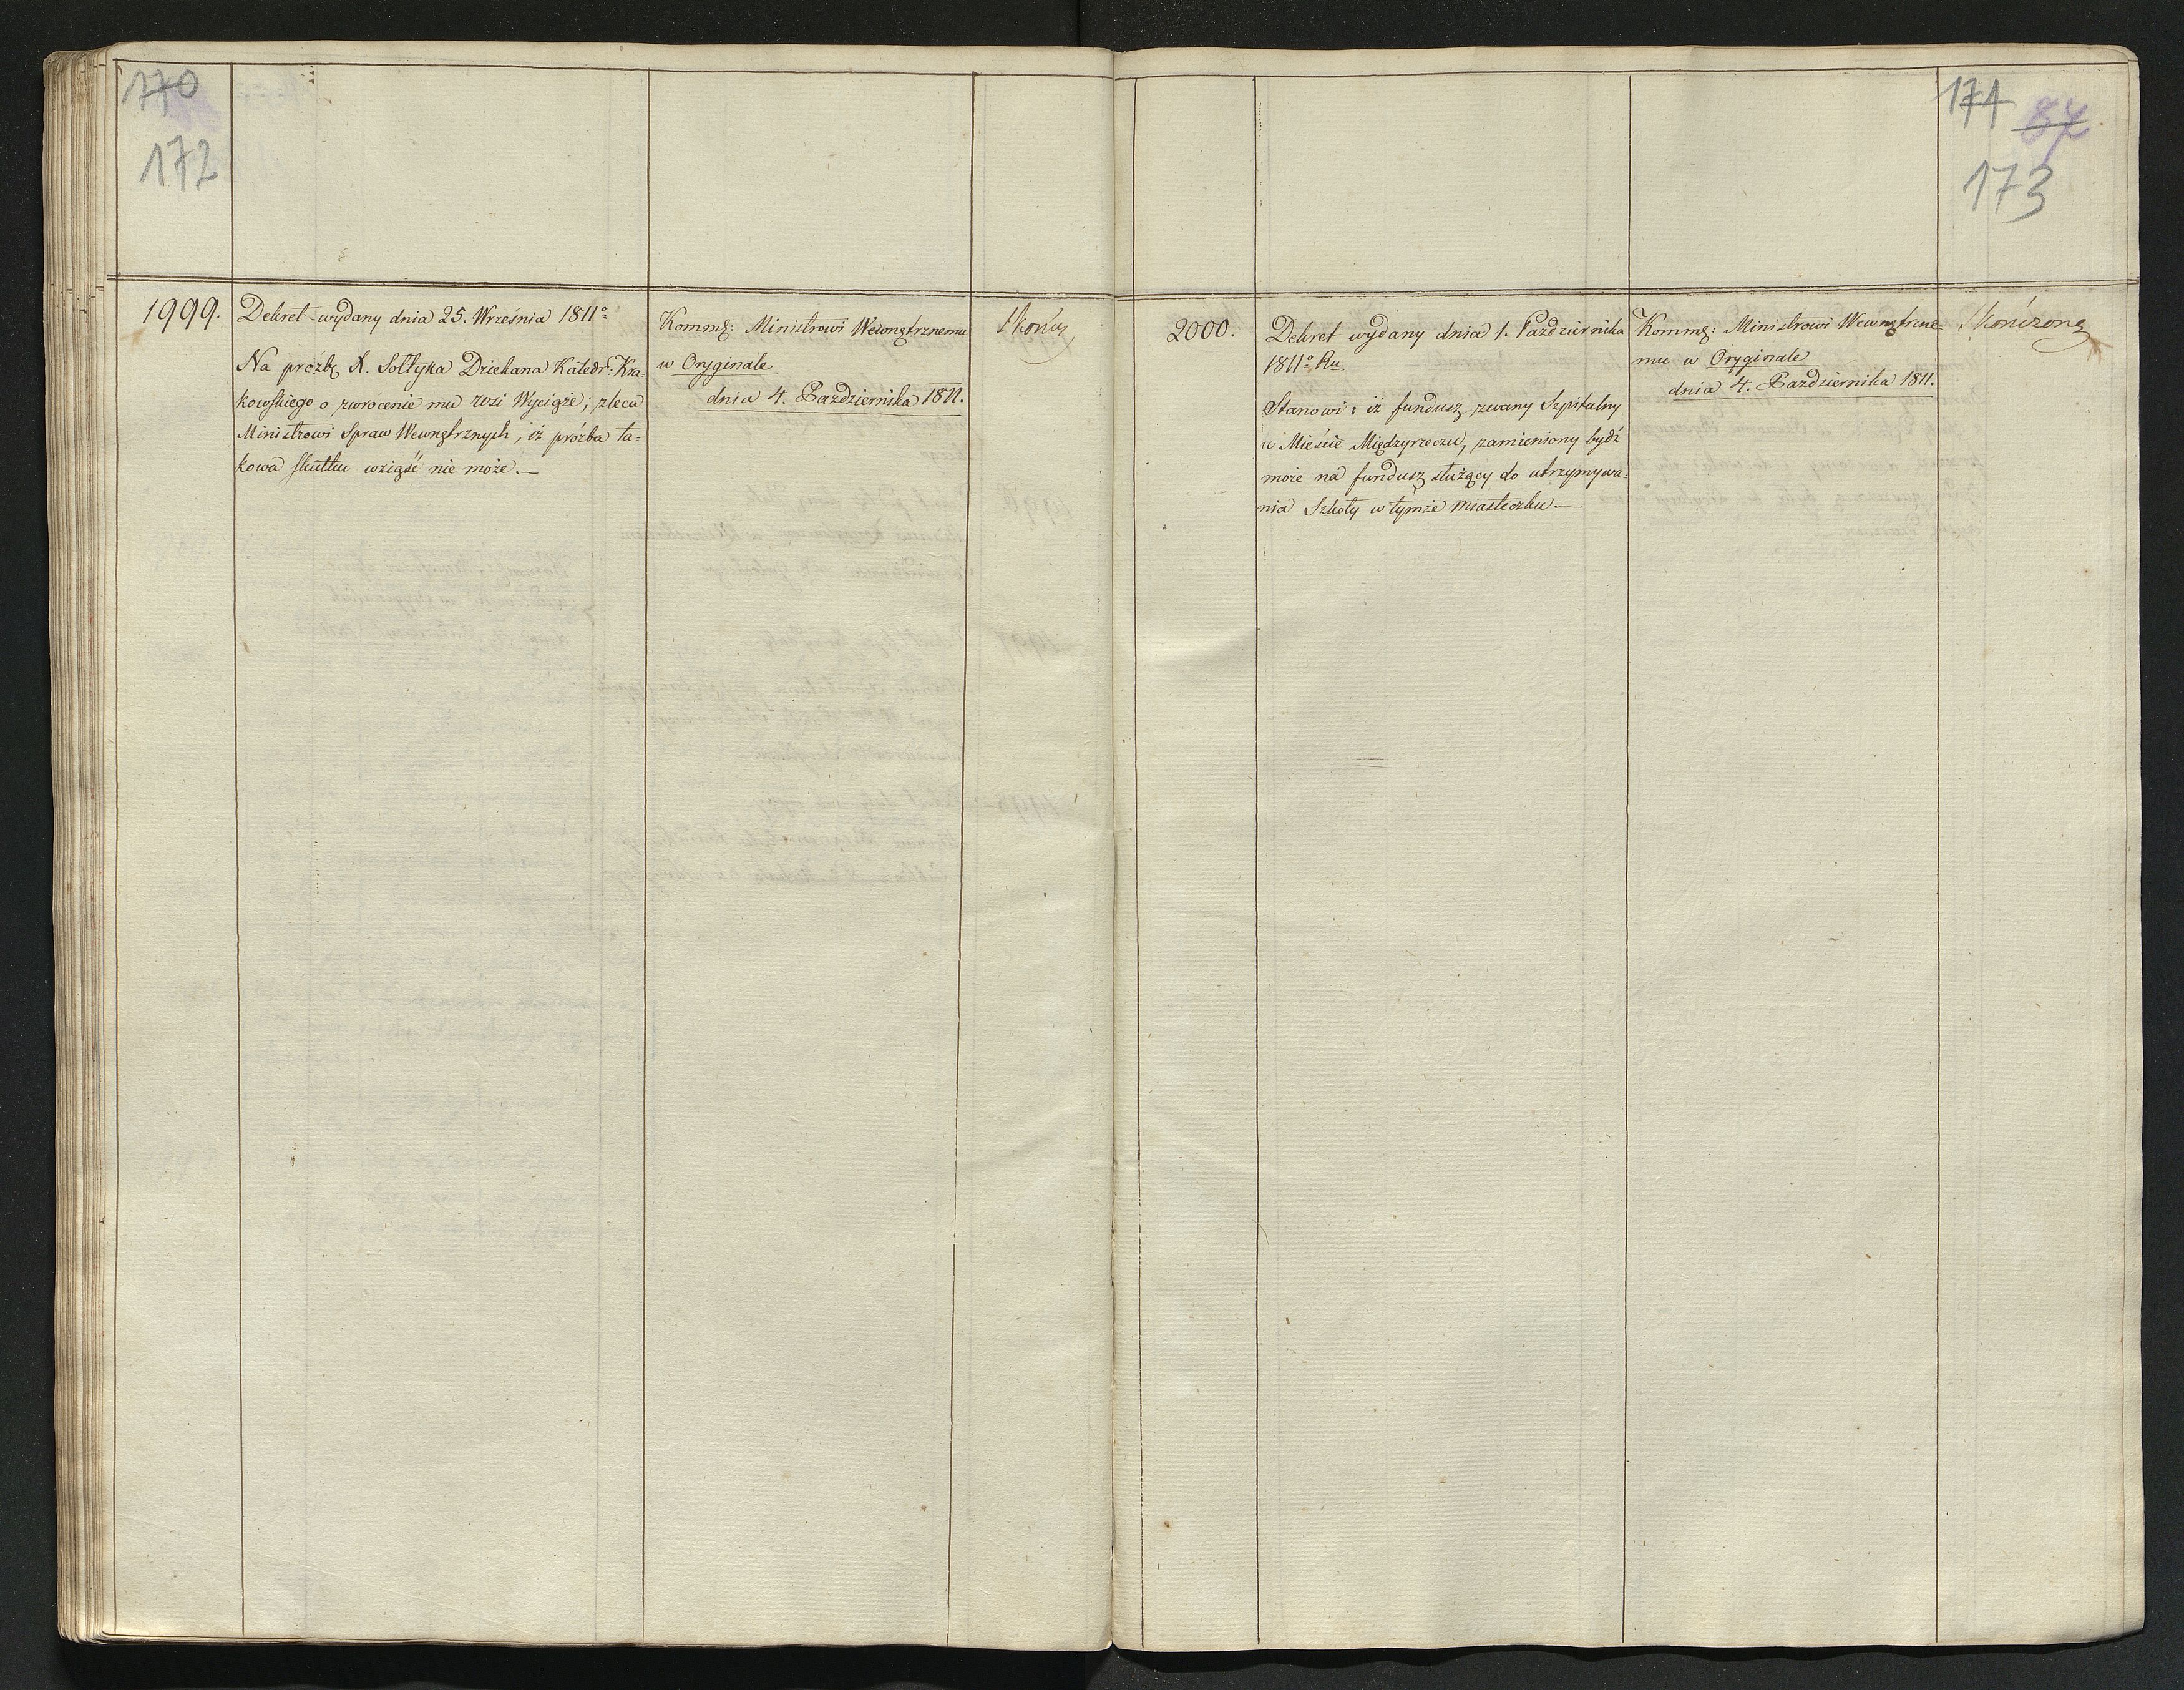 170
172
1999.
Dekret wydany dnia 25. Września 1811o
Na prozbę X. Sołtyka Dziekana Katedr: Kra-
kowskiego o zwrócenie mu wsi Wyciąże; zleca
Ministrowi Spraw Wewnętrznych, iż prózba ta-
kowa skutku wziąść nie może.—
Kommg: Ministrowi Wewnętrznemu
w Oryginale
dnia 4. Października 1811.
171 87
173
2000.
Dekret wydany dnia 1. Października
1811o Ru
Stanowi: iż fundusz zwany Szpitalny
w Mieście Międzyrzeczu, zamieniony bydź
może na fundusz służący do utrzymywa-
nia Szkoły w tymże miasteczku—
Kommg: Ministrowi Wewnętrzne-
mu w Oryginale
dnia 4. Października 1811.
Skończona